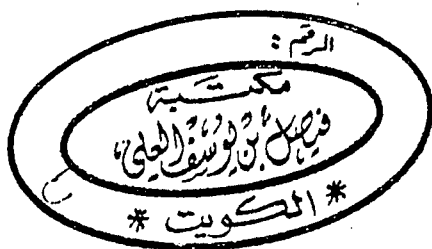 الرقم :
مكتبة
فيصل بن يوسف العلي
* الكويت *